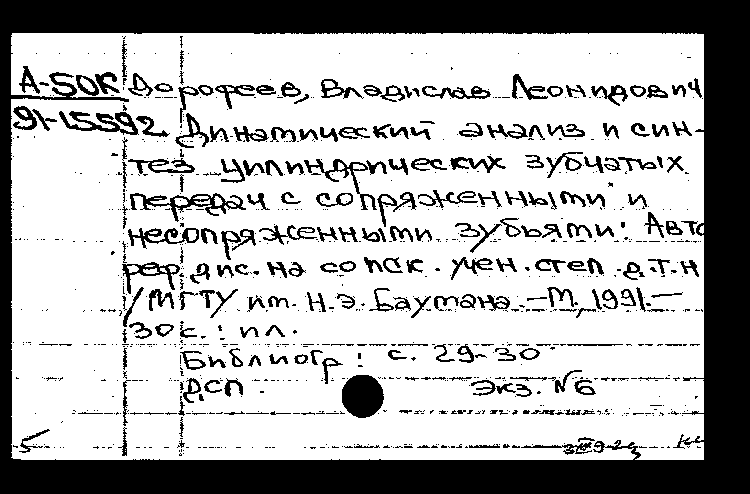 А-50К Дорофеев, Владислав Леонидович
91-15592 Динамический анализ и син-
тез цилиндрических зубчатых
передач с сопряженными и
несопряженными зубьями: Авто
реф. дис. на соиск. учен. степ. д.т.н
/МГТУ им. Н.Э. Баумана. — М., 1991. —
30 с. : ил.
Библиогр : с. 29-30
ДСП. Экз. №6
5